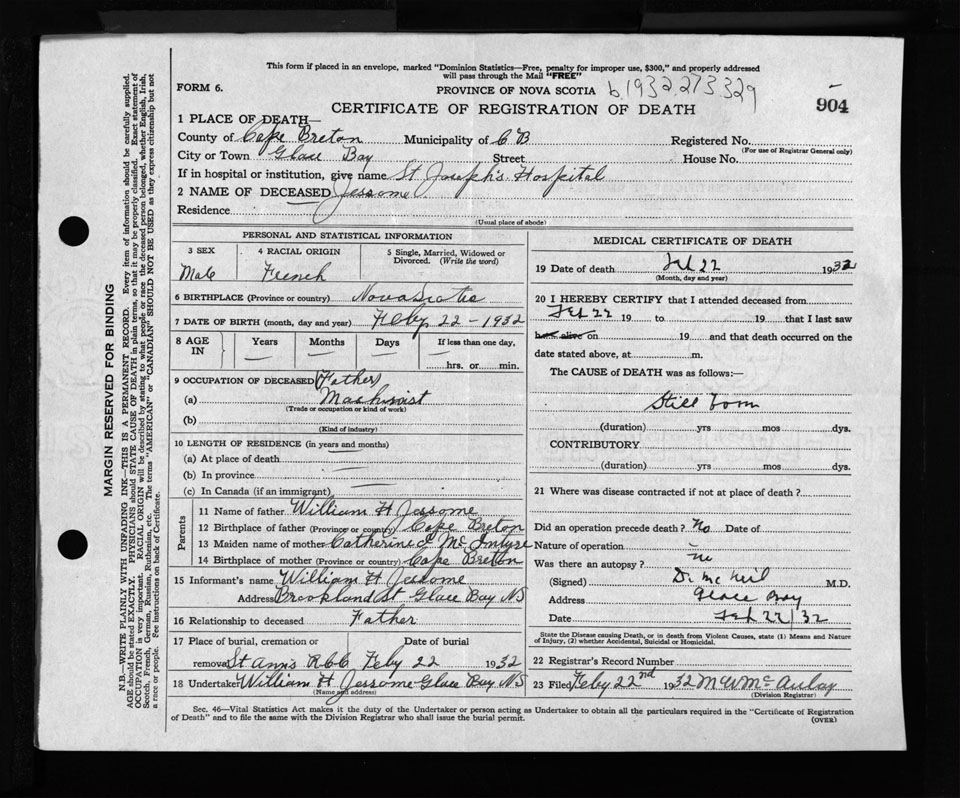 This form if placed in an envelope, marked "Dominion Statistics—Free, penalty for improper use, $300," and properly addressed
will pass through the Mail "FREE"
FORM 6.
PROVINCE OF NOVA SCOTIA
b.1932.273329
904
CERTIFICATE OF REGISTRATION OF DEATH
1 PLACE OF DEATH—
County of Cape Breton Municipality of C B Registered No.
(For use of Registrar General only)
City or Town Glace Bay Street House No.
If in hospital or institution, give name St Joseph's Hospital
2 NAME OF DECEASED — Jessome
Residence
(Usual place of abode)
PERSONAL AND STATISTICAL INFORMATION
3 SEX
Male
4 RACIAL ORIGIN
French
5 Single, Married, Widowed or
Divorced. (Write the word)
6 BIRTHPLACE (Province or country) Nova Scotia
7 DATE OF BIRTH (month, day and year) Feby 22 - 1932
8 AGE
IN
Years
—
Months
—
Days
—
If less than one day,
hrs. or min.
9 OCCUPATION OF DECEASED (Father)
(a) Machinist
(Trade or occupation or kind of work)
(b)
(Kind of industry)
10 LENGTH OF RESIDENCE (in years and months)
(a) At place of death —
(b) In province —
(c) In Canada (if an immigrant) —
Parents
11 Name of father William H Jessome
12 Birthplace of father (Province or country) Cape Breton
13 Maiden name of mother Catherine Mc Intyre
14 Birthplace of mother (Province or country) Cape Breton
15 Informant's name William H Jessome
Address Brookland St Glace Bay NS
16 Relationship to deceased Father
17 Place of burial, cremation or Date of burial
removal St Ann's RCC Feby 22 1932
18 Undertaker William H Jessome Glace Bay NS
(Name and address)
MEDICAL CERTIFICATE OF DEATH
19 Date of death Feb 22 1932
(Month, day and year)
20 I HEREBY CERTIFY that I attended deceased from
Feb 22 19 to 19 that I last saw
alive on 19 and that death occurred on the
date stated above, at m.
The CAUSE of DEATH was as follows:—
Still born
(duration) yrs mos dys.
CONTRIBUTORY
(duration) yrs mos dys.
21 Where was disease contracted if not at place of death?
Did an operation precede death? No Date of
Nature of operation —
Was there an autopsy? no
(Signed) Dr Mc Neil M.D.
Address Glace Bay
Date Feb 22/32
State the Disease causing Death, or in death from Violent Causes, state (1) Means and Nature
of Injury, (2) whether Accidental, Suicidal or Homicidal.
22 Registrar's Record Number
23 Filed Feby 22nd 1932 McAulay
(Division Registrar)
Sec. 46—Vital Statistics Act makes it the duty of the Undertaker or person acting as Undertaker to obtain all the particulars required in the "Certificate of Registration
of Death" and to file the same with the Division Registrar who shall issue the burial permit.
(OVER)
MARGIN RESERVED FOR BINDING
N.B.—WRITE PLAINLY WITH UNFADING INK—THIS IS A PERMANENT RECORD. Every item of information should be carefully supplied.
AGE should be stated EXACTLY. PHYSICIANS should STATE CAUSE OF DEATH in plain terms, so that it may be properly classified. Exact statement of
OCCUPATION is very important. RACIAL ORIGIN will be described by stating to what people or race the deceased person belonged, whether English, Irish,
Scotch, French, German, Russian, Ruthenian, etc. The terms "AMERICAN" or "CANADIAN" SHOULD NOT BE USED as they express citizenship but not
a race or people. See instructions on back of Certificate.